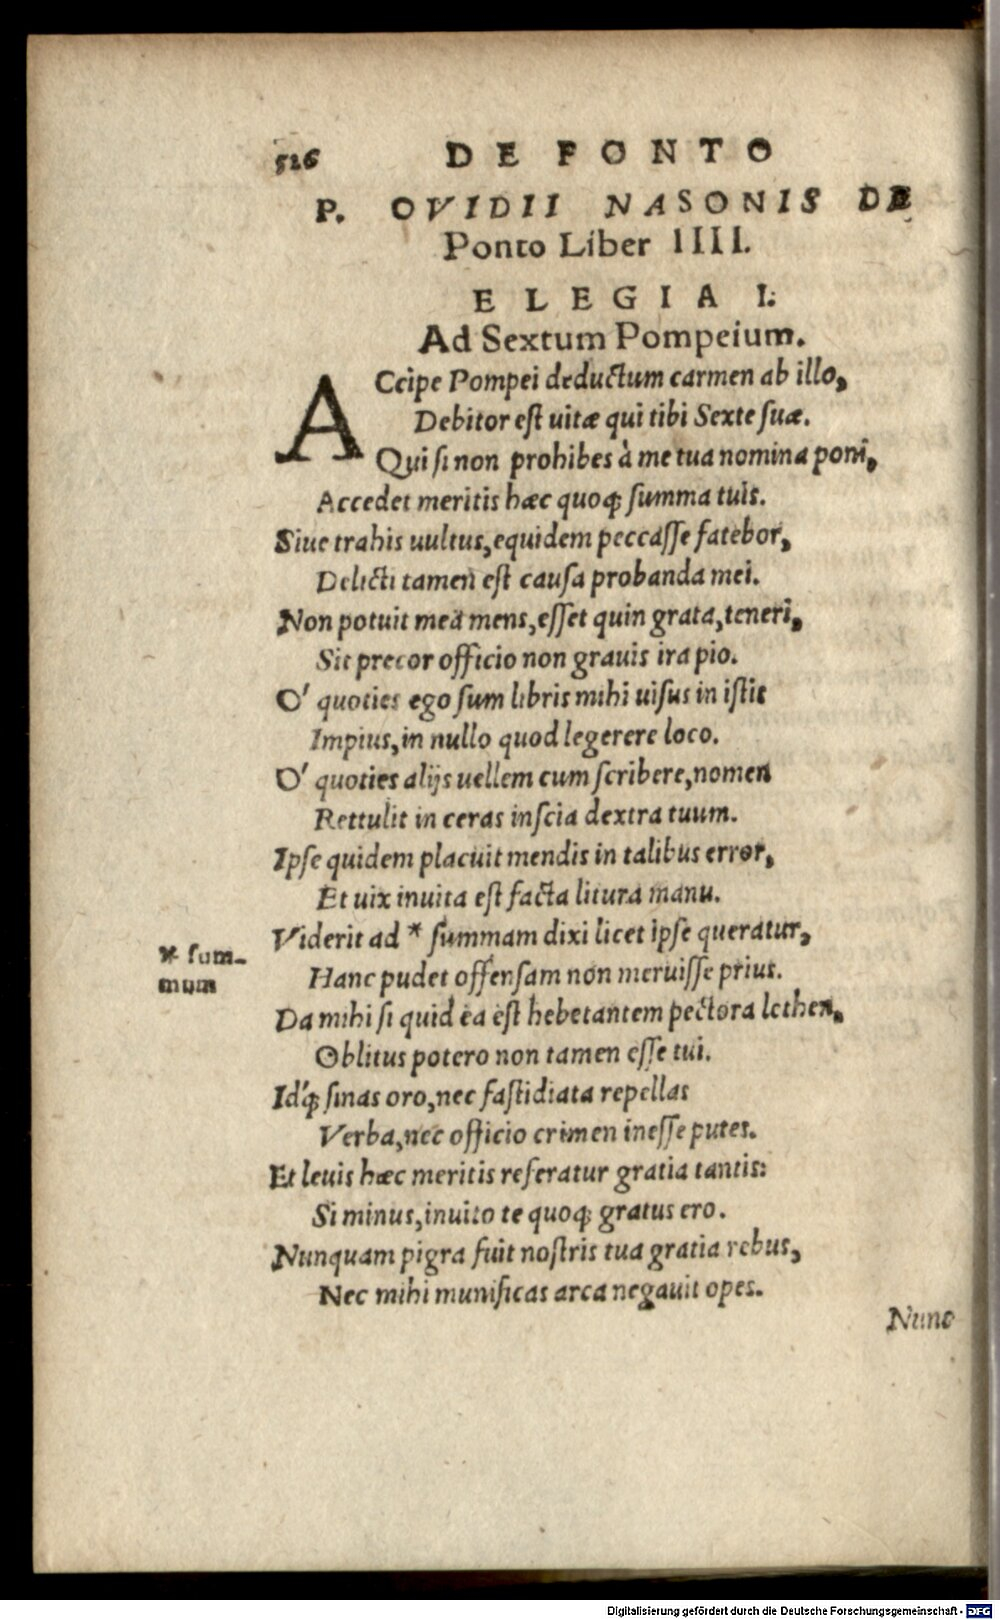 526 DE PONTO
P. OVIDII NASONIS DE
Ponto Liber IIII.
ELEGIA I.
Ad Sextum Pompeium.
ACcipe Pompei deductum carmen ab illo,
Debitor est uitæ qui tibi Sexte suæ.
Qui si non prohibes à me tua nomina poni,
Accedet meritis hæc quoq; summa tuis.
Siue trahis uultus, equidem peccasse fatebor,
Delicti tamen est causa probanda mei.
Non potuit mea mens, esset quin grata, teneri,
Sit precor officio non grauis ira pio.
O' quoties ego sum libris mihi uisus in istis
Impius, in nullo quod legerere loco.
O' quoties alijs uellem cum scribere, nomen
Rettulit in ceras inscia dextra tuum.
Ipse quidem placuit mendis in talibus error,
Et uix inuita est facta litura manu.
Viderit ad * summam dixi licet ipse queratur,
* sum-
mum
Hanc pudet offensam non meruisse prius.
Da mihi si quid ea est hebetantem pectora lethen,
Oblitus potero non tamen esse tui.
Id'q; sinas oro, nec fastidiata repellas
Verba, nec officio crimen inesse putes.
Et leuis hæc meritis referatur gratia tantis:
Si minus, inuito te quoq; gratus ero.
Nunquam pigra fuit nostris tua gratia rebus,
Nec mihi munificas arca negauit opes.
Nunc
Digitalisierung gefördert durch die Deutsche Forschungsgemeinschaft - DFG